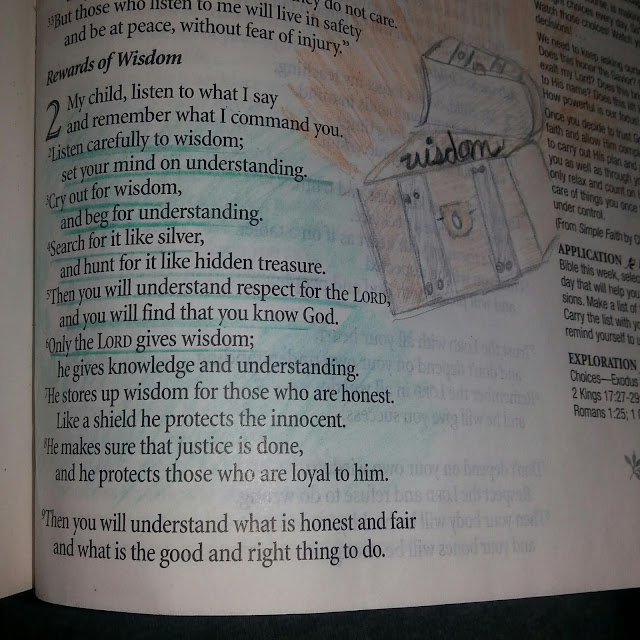 they do not care.
33But those who listen to me will live in safety
and be at peace, without fear of injury."
Rewards of Wisdom
2 My child, listen to what I say
and remember what I command you.
2Listen carefully to wisdom;
set your mind on understanding.
3Cry out for wisdom,
and beg for understanding.
4Search for it like silver,
and hunt for it like hidden treasure.
5Then you will understand respect for the LORD,
and you will find that you know God.
6Only the LORD gives wisdom;
he gives knowledge and understanding.
7He stores up wisdom for those who are honest.
Like a shield he protects the innocent.
8He makes sure that justice is done,
and he protects those who are loyal to him.
9Then you will understand what is honest and fair
and what is the good and right thing to do.
wisdom
choices every day
Watch those choices! Watch
decisions!
We need to keep asking
Does this honor the Savior
exalt my Lord? Does this
to His name? Does this
How powerful is our
Once you decide to trust
faith and allow Him
to carry out His plan and
you as well as through
only relax and count
care of things you once
under control.
(From Simple Faith by
APPLICATION
Bible this week, select
day that will help you
sions. Make a list of
Carry the list with
remind yourself to
EXPLORATION
Choices—Exodus
2 Kings 17:27-29
Romans 1:25; 1